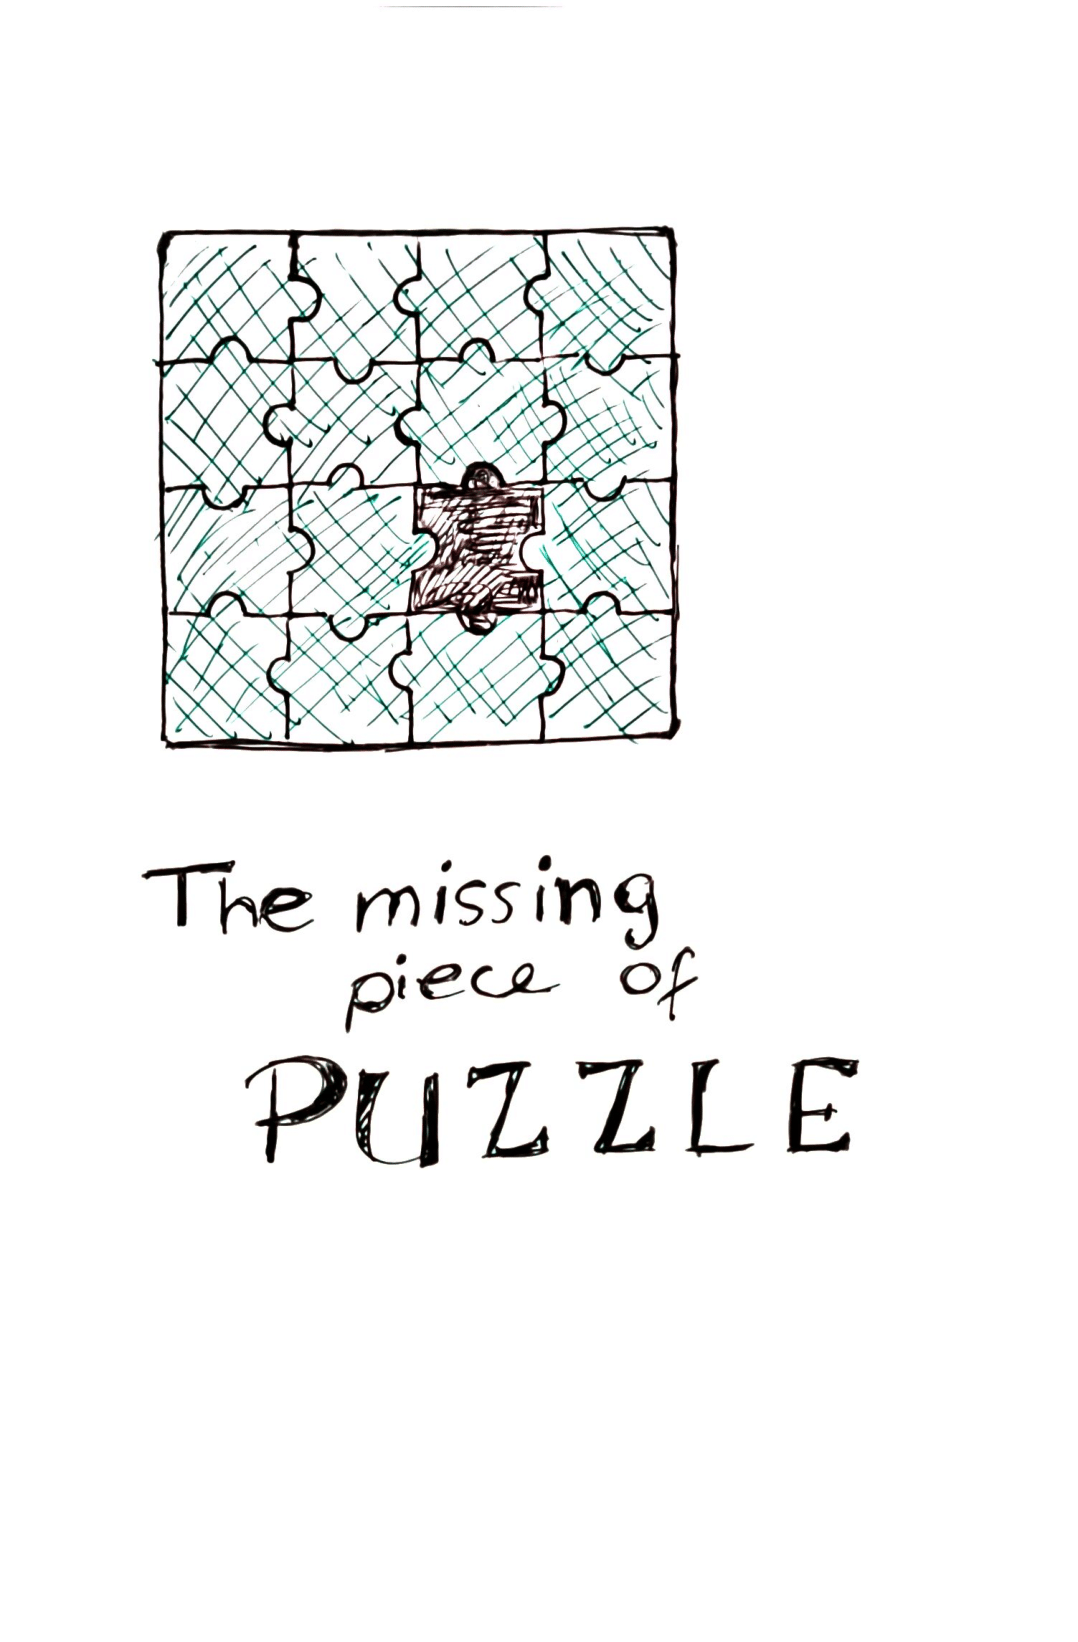 The missing
piece of
PUZZLE